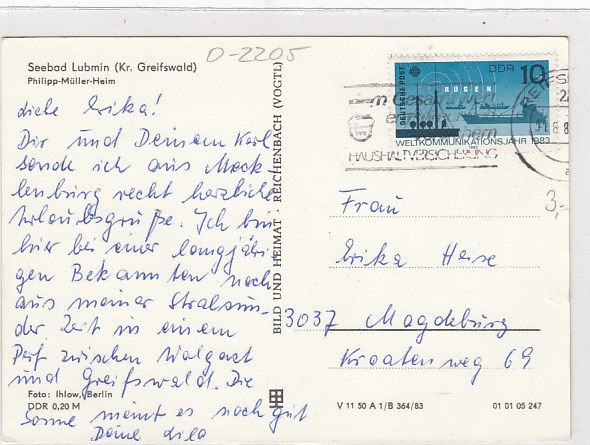 O-2205
Seebad Lubmin (Kr. Greifswald)
Philipp-Müller-Heim
Liebe Erika!
Dir und Deinem Karl
sende ich aus Meck-
lenburg recht herzliche
Urlaubsgrüße. Ich bin
hier bei einer langjähri-
gen Bekannten noch
aus meiner Stralsun-
der Zeit in einem
Dorf zwischen Wolgast
und Greifswald. Die
Sonne meint es noch gut
Deine Lilo
Foto: Ihlow, Berlin
DDR 0,20 M
BILD UND HEIMAT REICHENBACH (VOGTL)
DEUTSCHE POST
DDR 10
RÜGEN
WELTKOMMUNIKATIONSJAHR 1983
HAUSHALTVERSICHERUNG
3,-
Frau
Erika Hese
3037 Magdeburg
Kroatenweg 69
V 11 50 A 1/B 364/83
01 01 05 247